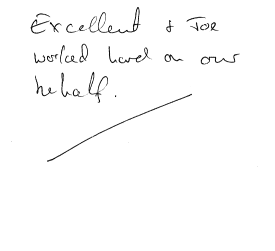 Excellent & Joe
worked hard on our
behalf.